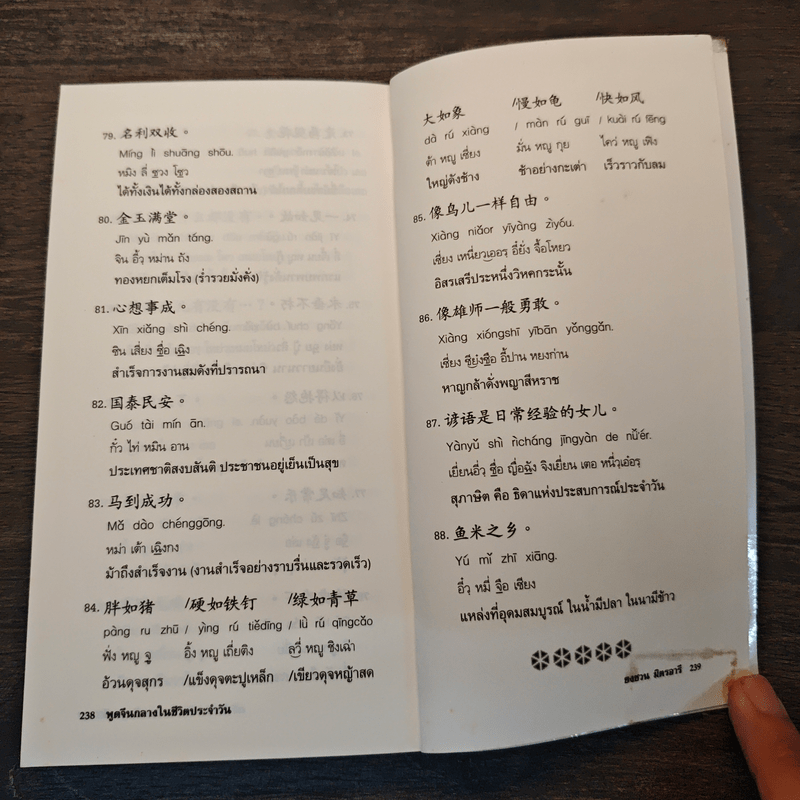 79. 名利双收。
Míng lì shuāng shōu.
หมิง ลี่ ซวง โซว
ได้ทั้งเงินได้ทั้งกล่องสองสถาน
80. 金玉满堂。
Jīn yù mǎn táng.
จิน อวี้ หม่าน ถัง
ทองหยกเต็มโรง (ร่ำรวยมั่งคั่ง)
81. 心想事成。
Xīn xiǎng shì chéng.
ซิน เสี่ยง ซื่อ เฉิง
สำเร็จการงานสมดังที่ปรารถนา
82. 国泰民安。
Guó tài mín ān.
กั๋ว ไท่ หมิน อาน
ประเทศชาติสงบสันติ ประชาชนอยู่เย็นเป็นสุข
83. 马到成功。
Mǎ dào chénggōng.
หม่า เต้า เฉิงกง
ม้าถึงสำเร็จงาน (งานสำเร็จอย่างราบรื่นและรวดเร็ว)
84. 胖如猪 /硬如铁钉 /绿如青草
pàng ru zhū / yìng rú tiědīng / lǜ rú qīngcǎo
ฟั่ง หญู จู อิ้ง หญู เถี่ยติง ลวี่ หญู ชิงเฉ่า
อ้วนดุจสุกร /แข็งดุจตะปูเหล็ก /เขียวดุจหญ้าสด
238 พูดจีนกลางในชีวิตประจำวัน
大如象 /慢如龟 /快如风
dà rú xiàng / màn rú guī / kuài rú fēng
ต้า หญู เซี่ยง มั่น หญู กุย ไคว่ หญู เฟิง
ใหญ่ดังช้าง ช้าอย่างกะเต่า เร็วราวกับลม
85. 像鸟儿一样自由。
Xiàng niǎor yīyàng zìyóu.
เซี่ยง เหนี่ยวเออร อี๋ยั่ง จื้อโหยว
อิสรเสรีประหนึ่งวิหคกระนั้น
86. 像雄师一般勇敢。
Xiàng xióngshī yībān yǒnggǎn.
เซี่ยง ซีย๋งซือ อี้ปาน หยงก่าน
หาญกล้าดั่งพญาสีหราช
87. 谚语是日常经验的女儿。
Yànyǔ shì rìcháng jīngyàn de nǚ'ér.
เยี่ยนอี่ว ซื่อ ญื่อฉัง จิงเยี่ยน เตอ หนี่วเอ๋อร
สุภาษิต คือ ธิดาแห่งประสบการณ์ประจำวัน
88. 鱼米之乡。
Yú mǐ zhī xiāng.
อี๋ว หมี่ จือ เซียง
แหล่งที่อุดมสมบูรณ์ ในน้ำมีปลา ในนามีข้าว
ยงชวน มิตรอารี 239